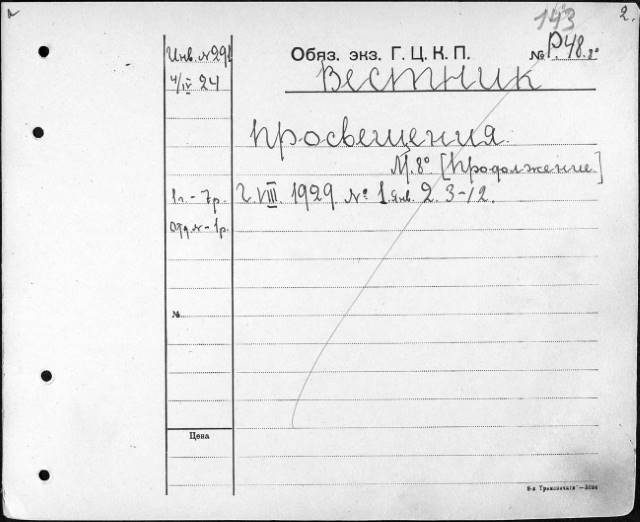 143
2.
Инв. №291
4/IV 24
Обяз. экз. Г. Ц. К. П.
№ Р.48.8°
Вестник
просвещения.
М. 8° [Продолжение.]
1г. - 7р.
Г. VIII. 1929 № 1.янв. 2. 3-12.
Отд.№ - 1р.
№
Цена